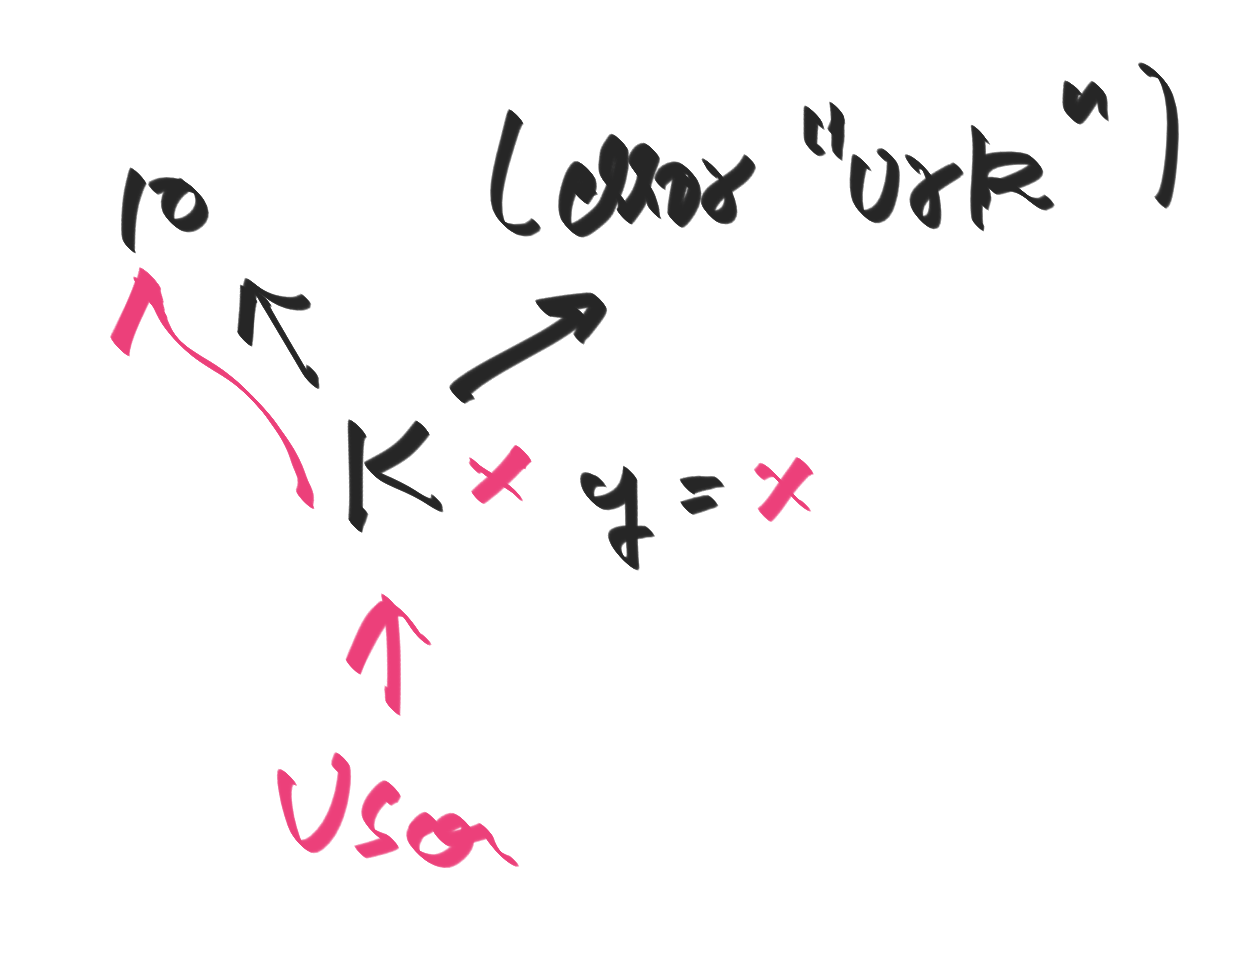 10 (error "urk")
K x y = x
User